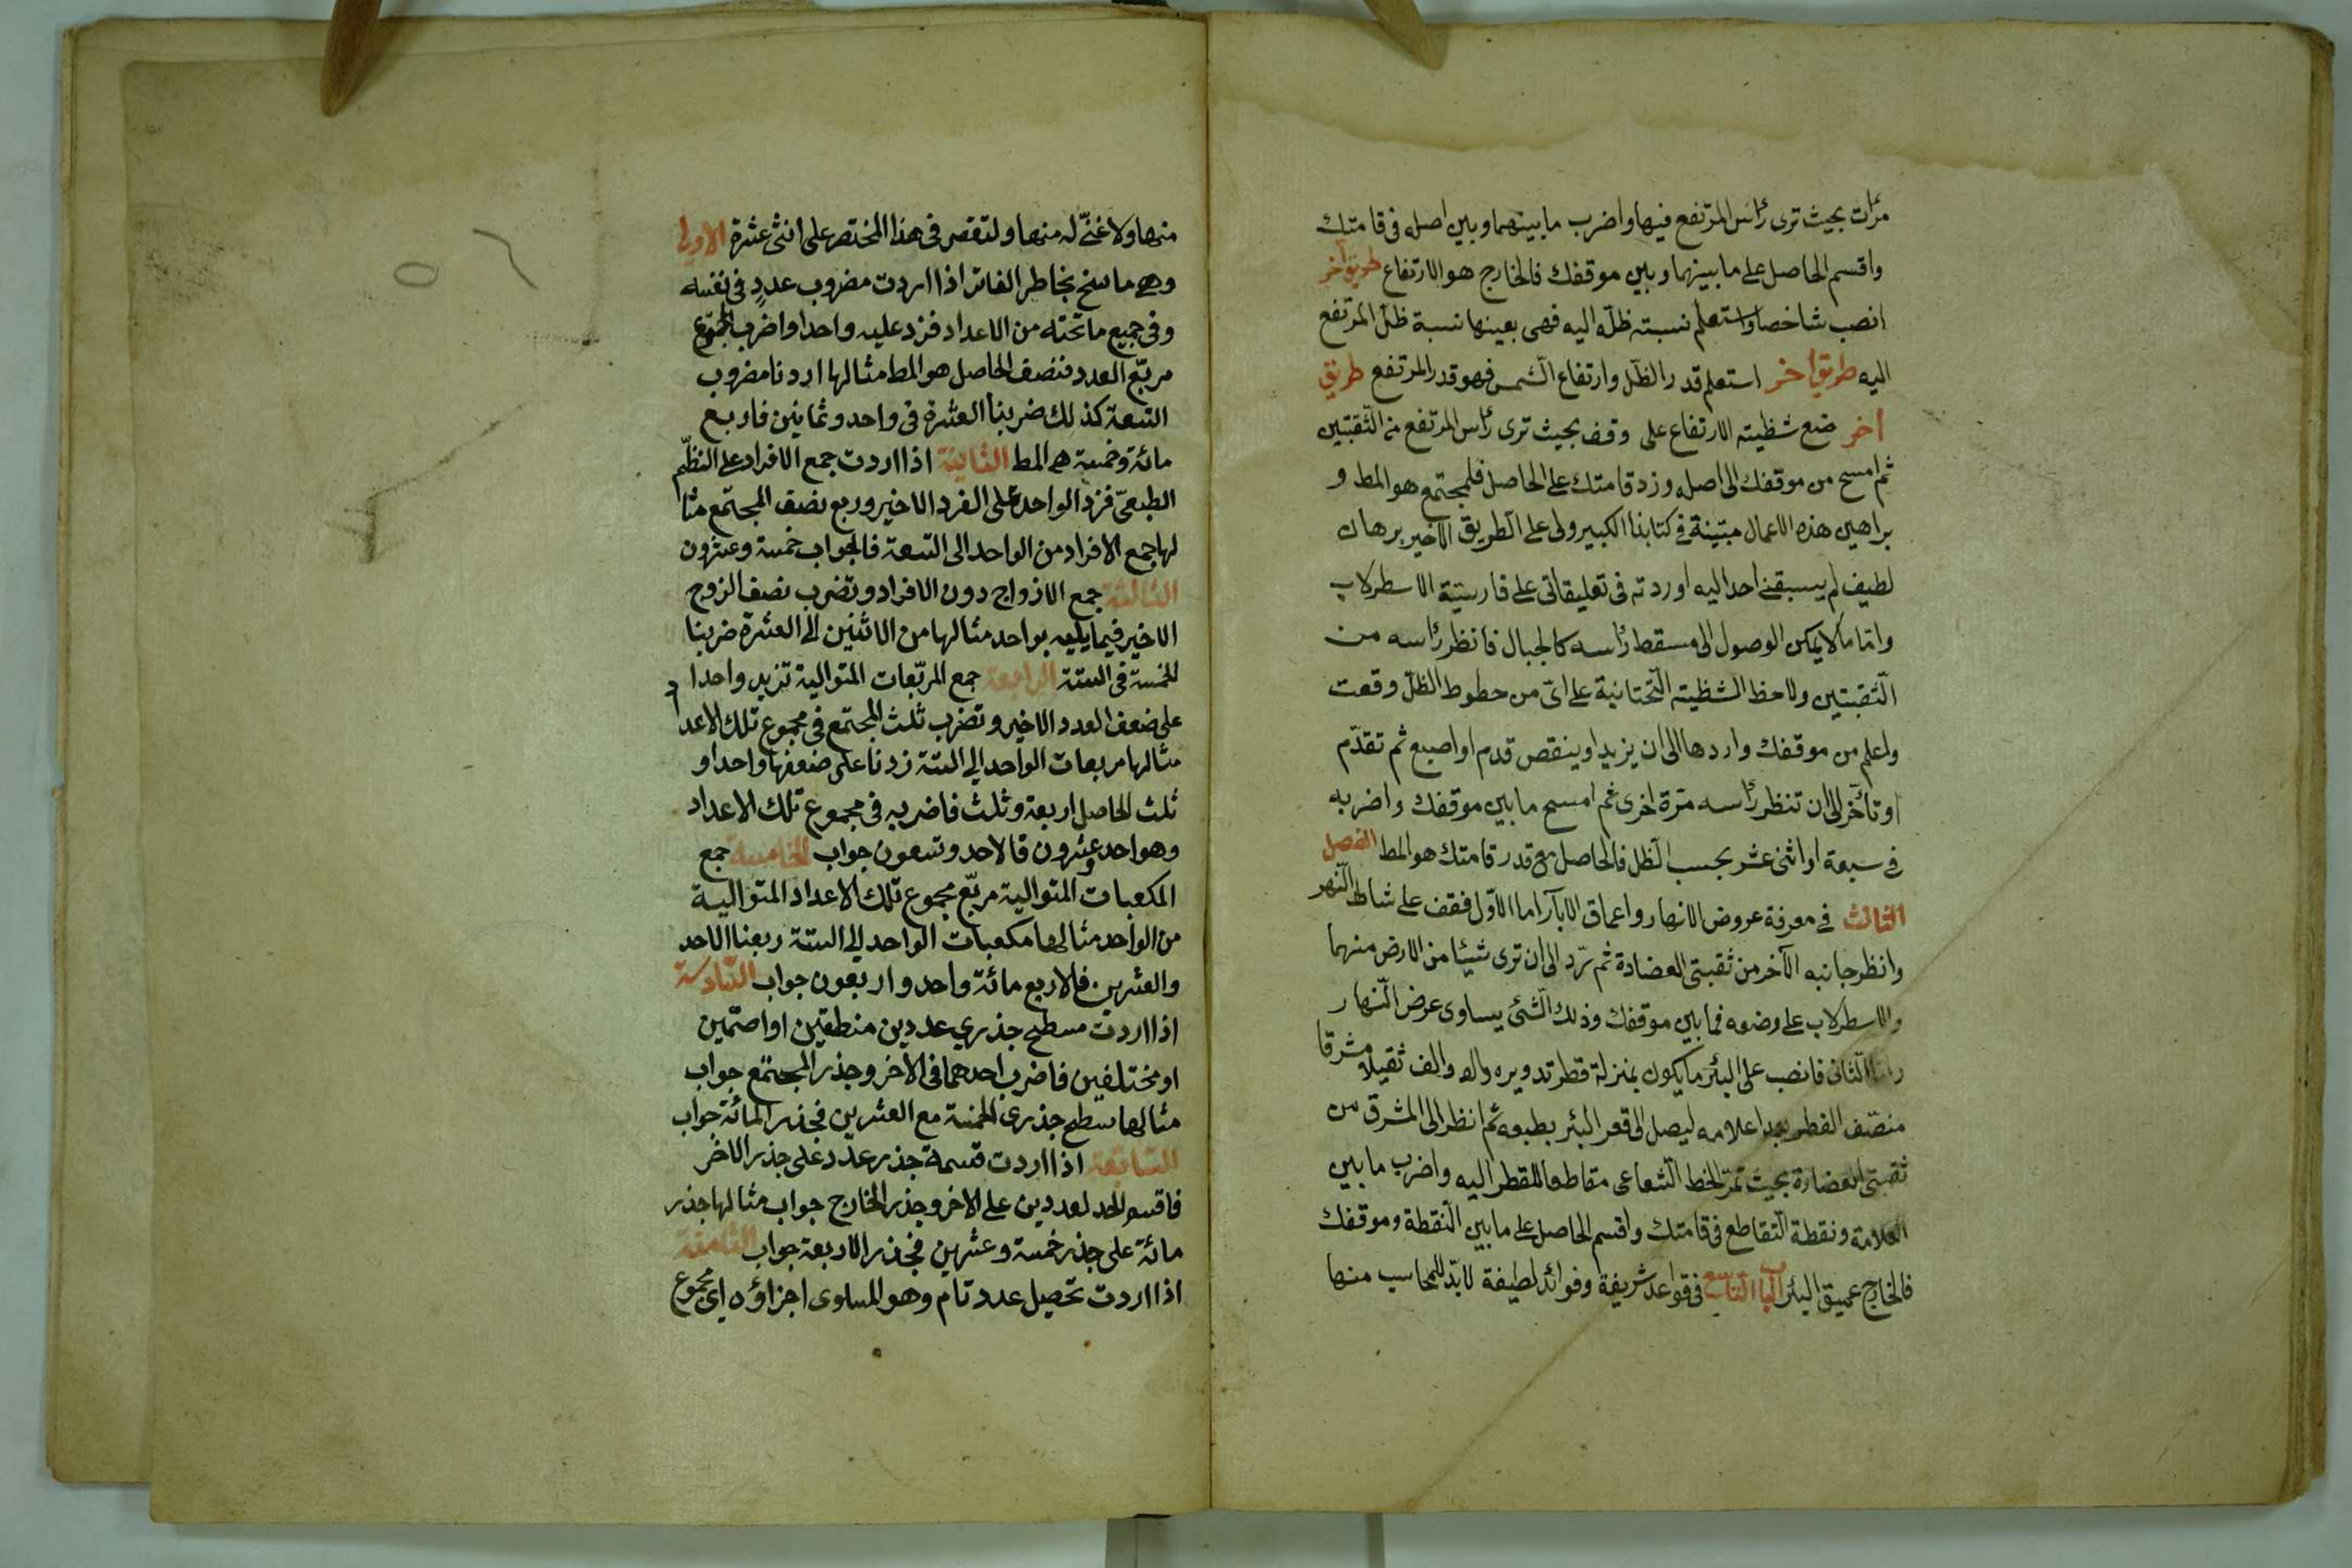 مرآت بحيث ترى رأس المرتفع فيها واضرب ما بينهما وبين اصله فى قامتك
واقسم الحاصل على ما بينهما وبين موقفك فالخارج هو الارتفاع طريق آخر
انصب شاخصا واستعلم نسبته ظلّه اليه فهى بعينها نسبة ظلّ المرتفع
اليه طريق أخر استعلم قدر الظّل وارتفاع الشّمس فهو قدر المرتفع طريق
أخر ضع شظيته الارتفاع على وقف بحيث ترى رأس المرتفع من الثّقبتين
ثم امسح من موقفك الى اصله وزد قامتك على الحاصل فلمجتمع هو المط و
براهين هذه الاعمال مبيّنة فى كتابنا الكبير ولى على الطريق الاخير برهان
لطيف لم يسبقنى احد اليه اوردته فى تعليقاتى على فارسيّة الاسطرلاب
وامّا ما لايمكن الوصول الى مسقط رأسه كالجبال فانظر رأسه من
الثّقبتين ولاحظ الشظيته التّحتانية على اىّ من خطوط الظلّ وقعت
واعلم من موقفك وادرها الى ان يزيد او ينقص قدم او اصبع ثم تقدّم
او تأخّر الى ان تنظر رأسه مرّة اخرى ثم امسح ما بين موقفك واضربه
فى سبعة او اثنى عشر بحسب الظّل فالحاصل مع قدر قامتك هو المط الفصل
الثالث فى معرفة عروض الانهار واعماق الابآر اما الاوّل فقف على شاط النّهر
وانظر جانبه الآخر من ثقبتى العضادة ثم تدر الى ان ترى شيئا من الارض منهما
والاسطرلاب على وضعه فما بين موقفك وذلك الشّئ يساوى عرض النّهار
وامّا الثّانى فانصب على البئر ما يكون بمنزلة قطر تدويره والف ثقيلا مشرقا
منصّف القطر بعد اعلامه ليصل الى قعر البئر بطبعه ثم انظر الى المشرق من
ثقبتى العضادة بحيث تمرّ الخط الشّعاعى مقاطعا للقطر اليه واضرب ما بين
العلامة ونقطة التّقاطع فى قامتك واقسم الحاصل على ما بين النّقطة وموقفك
فالخارج عميق البئر الباب التاسع فى قواعد شريفة وفوائد لطيفة لابدّ للمحاسب منها
منها ولا غنىّ له منها ولنقصر فى هذا المختصر على اثنى عشرة الاولى
وهى ما سنح بخاطر الفاتر اذا اردت مضروب عددٍ فى نفسه
وفى جميع ما تحته من الاعداد فزد عليه واحدا واضرب المجموع
مربّع العدد فنصف الحاصل هو المط مثالها اردنا مضروب
التسعة كذلك ضربنا العشرة فى واحد وثمانين فاربع
مائة وخمسة هى المط الثانية اذا اردت جمع الافراد على النظّم
الطبعىّ فزد الواحد على الفرد الاخير وربع نصف المجتمع مثا
لها جمع الافراد من الواحد الى التسعة فالجواب خمسة وعشرون
الثالثة جمع الازواج دون الافراد وتضرب نصف الزوج
الاخير فيما يليه بواحد مثالها من الاثنين الى العشرة ضربنا
الخمسة فى الستة الرابعة جمع المربّعات المتوالية تزيد واحدا
على ضعف العدد الاخير وتضرب ثلث المجتمع فى مجموع تلك الاعداد
مثالها مربعات الواحد الى الستة زدنا على ضعفها واحدا و
ثلث الحاصل اربعة وثلث فاضربه فى مجموع تلك الاعداد
وهو احد وعشرون فالاحد وتسعون جواب الخامسة جمع
المكعبات المتوالية مربّع مجموع تلك الاعداد المتوالية
من الواحد مثالها مكعبات الواحد الى الستة ربعنا الاحد
والعشرين فالاربع مائة واحد واربعون جواب السّادسة
اذا اردت مسطح جذرى عددين منطقين او اصمّين
او مختلفين فاضرب احدهما فى الاخر وجذر المجتمع جواب
مثالها سطح جذرى الخمسة مع العشرين فجذر المائة جواب
السّابعة اذا اردت قسمة جذر عدد على جذر الاخر
فاقسم احد لعددين على الاخر وجذر الخارج جواب مثالها جذر
مائة على جذر خمسة وعشرين فجذر الاربعة جواب الثامنة
اذا اردت تحصيل عدد تام وهو المساوى اجزاؤه اى مجموع